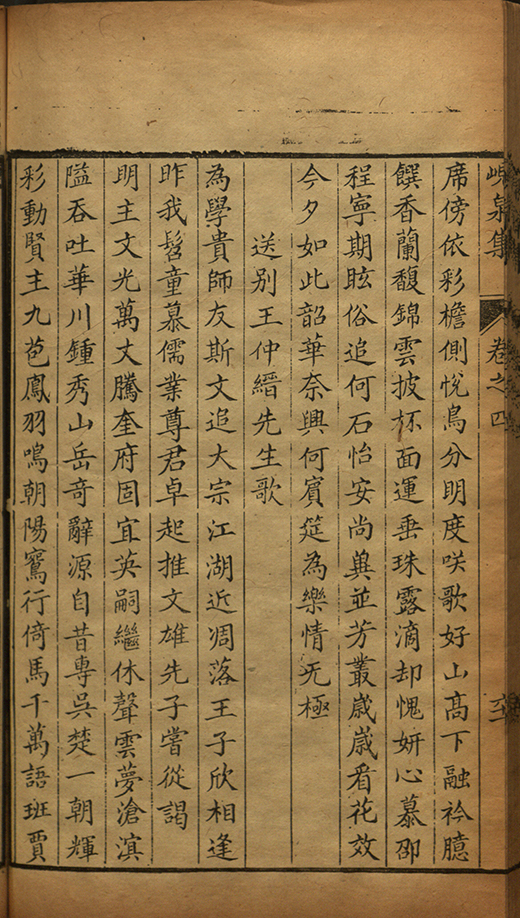 峴泉集 卷之四
席傍依彩檐側悅鳥分明度咲歌好山高下融衿臆
饌香蘭馥錦雲披杯面運垂珠露滴却愧妍心慕邵
程寧期眩俗追何石怡安尚奠並芳叢歲歲看花效
今夕如此韶華奈興何賓筵為樂情无極
送别王仲縉先生歌
為學貴師友斯文追大宗江湖近凋落王子欣相逢
昨我髫童慕儒業尊君卓起推文雄先子嘗從謁
明主文光萬丈騰奎府固宜英嗣繼休聲雲夢滄溟
隘吞吐華川鍾秀山岳奇辭源自昔專吳楚一朝輝
彩動賢主九苞鳳羽鳴朝陽鵉行倚馬千萬語班賈